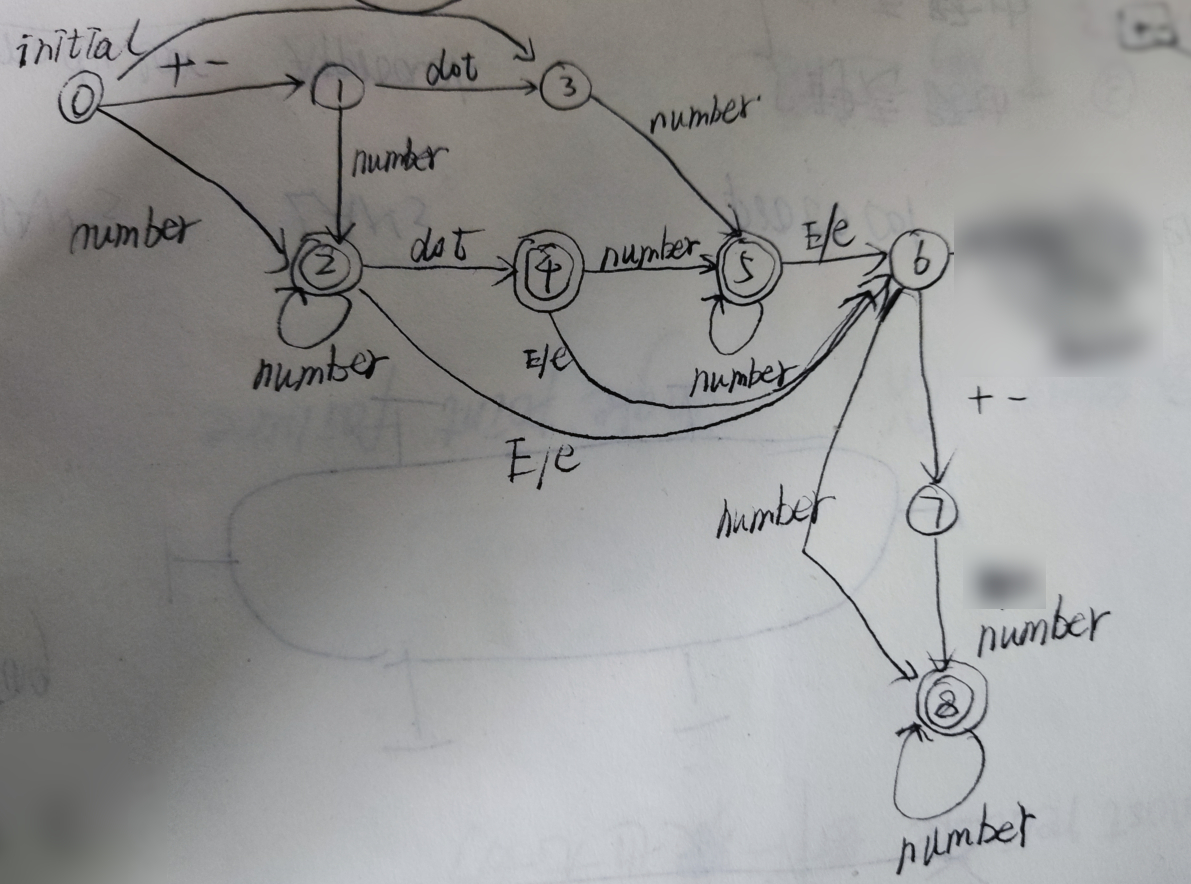 initial
+ -
0
1
dot
3
number
number
number
2
dot
4
number
5
E/e
6
number
E/e
number
E/e
+ -
number
7
number
8
number